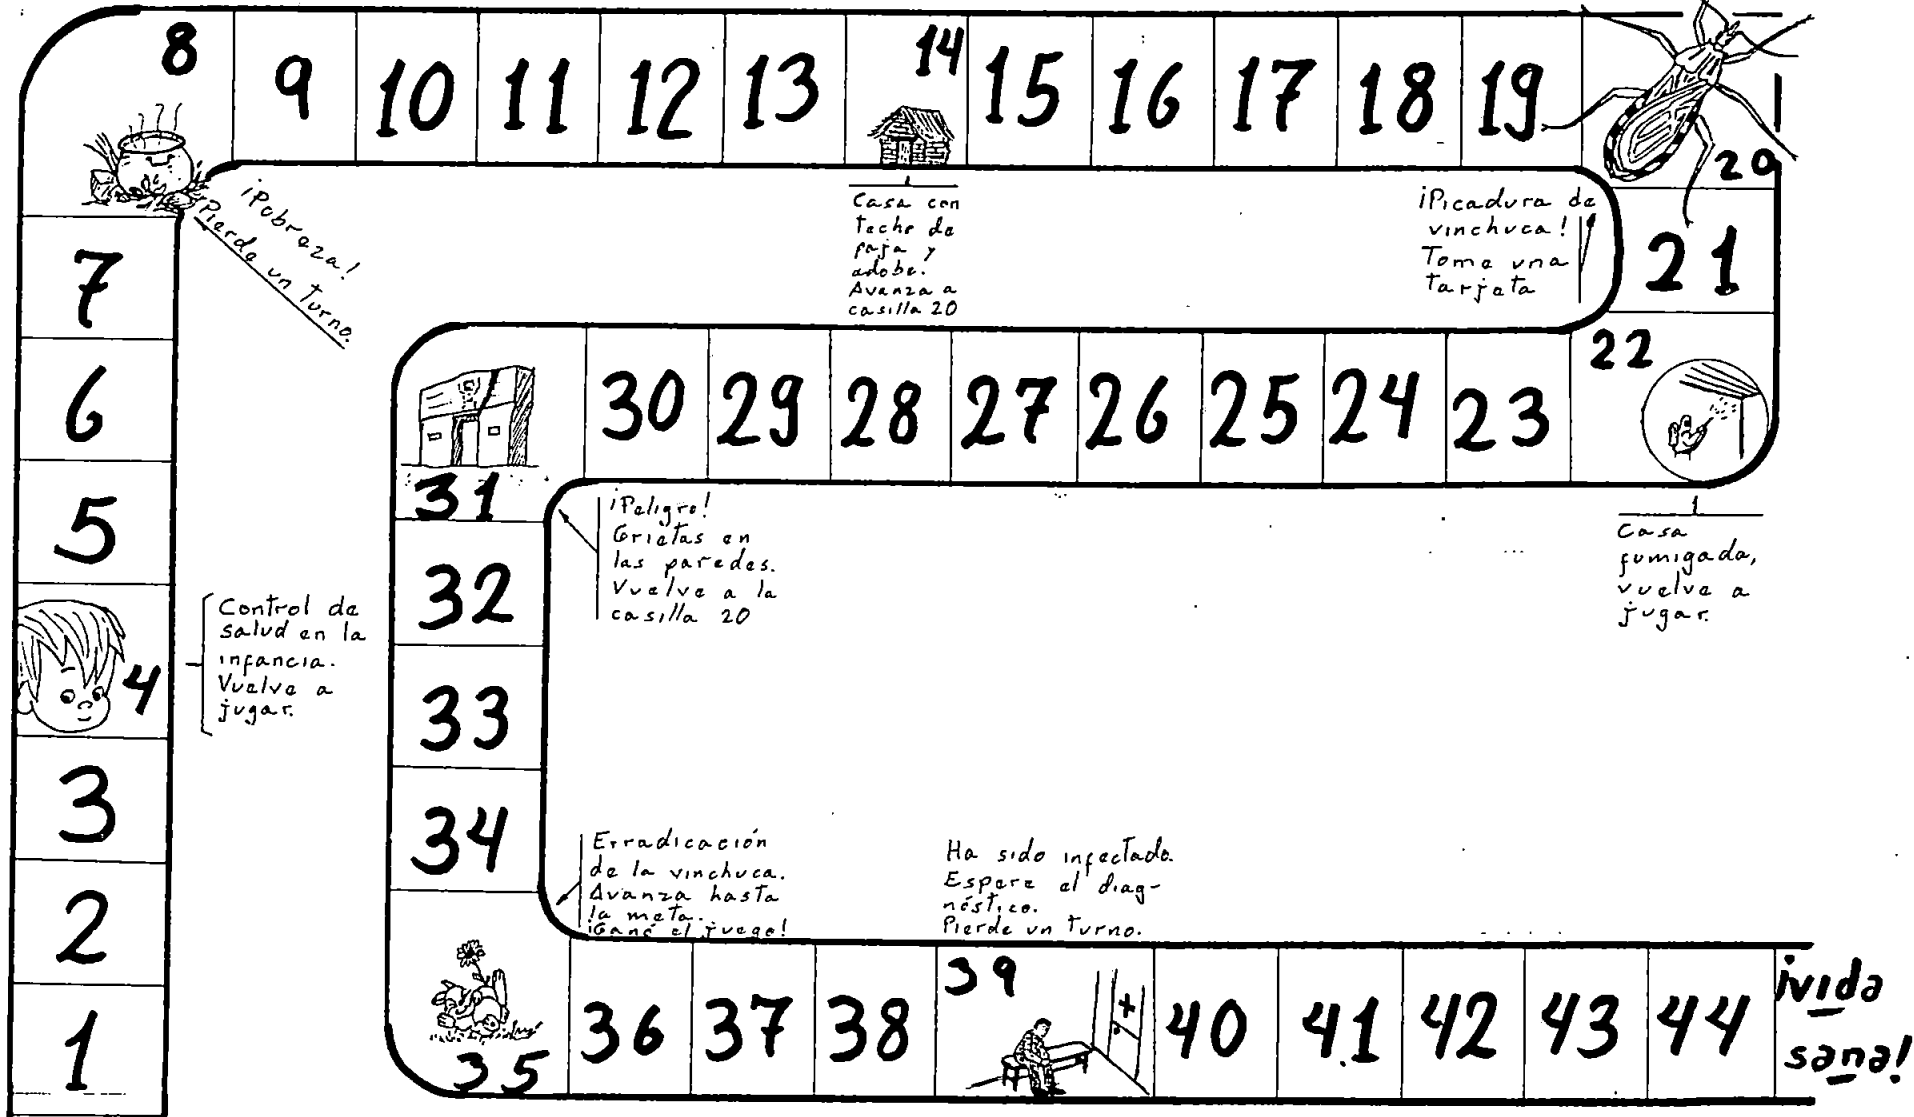 8
9
10
11
12
13
14
15
16
17
18
19
20
¡Pobreza!
Pierde un turno.
Casa con
techo de
paja y
adobe.
Avanza a
casilla 20
¡Picadura de
vinchuca!
Tome una
tarjeta
7
21
22
6
30
29
28
27
26
25
24
23
31
5
¡Peligro!
Grietas en
las paredes.
Vuelve a la
casilla 20
Casa
fumigada,
vuelve a
jugar.
32
4
Control de
salud en la
infancia.
Vuelve a
jugar.
33
3
34
Erradicación
de la vinchuca.
Avanza hasta
la meta.
¡Gané el juego!
Ha sido infectado.
Espere el diag-
nóstico.
Pierde un turno.
2
1
35
36
37
38
39
40
41
42
43
44
¡vida
sana!